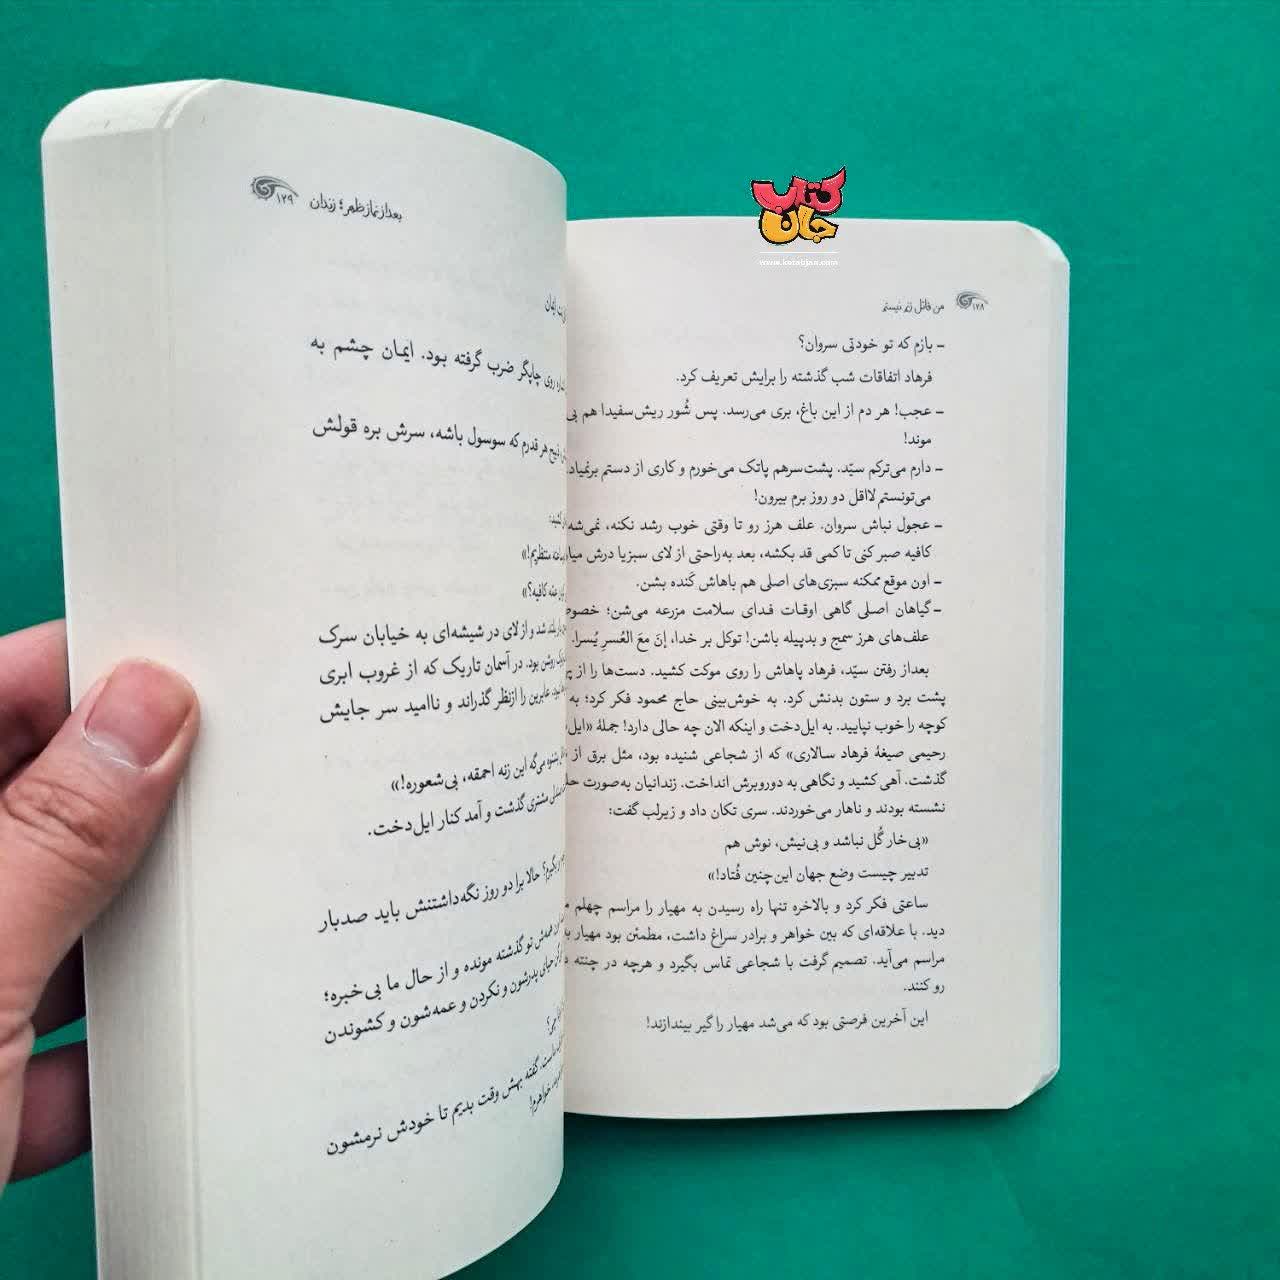 کتاب
جان
www.ketabjan.com
۱۲۸ من قاتل زنم نیستم
– بازم که تو خودتی سروان؟
فرهاد اتفاقات شب گذشته را برایش تعریف کرد.
– عجب! هر دم از این باغ، بری می‌رسد. پس شُور ریش‌سفیدا هم بی
موند!
– دارم می‌ترکم سیّد. پشت‌سرهم پاتک می‌خورم و کاری از دستم برنمیاد.
می‌تونستم لااقل دو روز برم بیرون!
– عجول نباش سروان. علف هرز رو تا وقتی خوب رشد نکنه، نمی‌شه
کافیه صبر کنی تا کمی قد بکشه، بعد به‌راحتی از لای سبزیا درش
– اون موقع ممکنه سبزی‌های اصلی هم باهاش کَنده بشن.
– گیاهان اصلی گاهی اوقات فدای سلامت مزرعه می‌شن؛
علف‌های هرز سمج و بدپیله باشن! توکل بر خدا، إنَ مَعَ العُسرِ یُسرا.
بعداز رفتن سیّد، فرهاد پاهاش را روی موکت کشید. دست‌ها را از
پشت برد و ستون بدنش کرد. به خوش‌بینی حاج محمود فکر کرد؛ به
کوچه را خوب نپایید. به ایل‌دخت و اینکه الان چه حالی دارد! جملهٔ «ایل‌
رحیمی صیغهٔ فرهاد سالاری» که از شجاعی شنیده بود، مثل برق از
گذشت. آهی کشید و نگاهی به دوروبرش انداخت. زندانیان به‌صورت
نشسته بودند و ناهار می‌خوردند. سری تکان داد و زیرلب گفت:
«بی‌خار گُل نباشد و بی‌نیش، نوش هم
تدبیر چیست وضع جهان این‌چنین فُتاد!»
ساعتی فکر کرد و بالاخره تنها راه رسیدن به مهیار را مراسم چهلم
دید. با علاقه‌ای که بین خواهر و برادر سراغ داشت، مطمئن بود مهیار
مراسم می‌آید. تصمیم گرفت با شجاعی تماس بگیرد و هرچه در چنته
رو کنند.
این آخرین فرصتی بود که می‌شد مهیار را گیر بیندازند!
بعداز نماز ظهر؛ زندان ۱۲۹
روی چاپگر ضرب گرفته بود. ایمان چشم به
هر قدرم که سوسول باشه، سرش بره قولش
منتظریم!»
کافیه؟»
بلند شد و از لای در شیشه‌ای به خیابان سرک
روشن بود. در آسمان تاریک که از غروب ابری
عابرین را ازنظر گذراند و ناامید سر جایش
بشنوه می‌گه این زنه احمقه، بی‌شعوره!»
مشتری گذشت و آمد کنار ایل‌دخت.
بگیرم؟ حالا برا دو روز نگه‌داشتنش باید صدبار
تو گذشته مونده و از حال ما بی‌خبره؛
حیای پدرشون و نکردن و عمه‌شون و کشوندن
گفته بهش وقت بدیم تا خودش نرمشون
خواهرم!